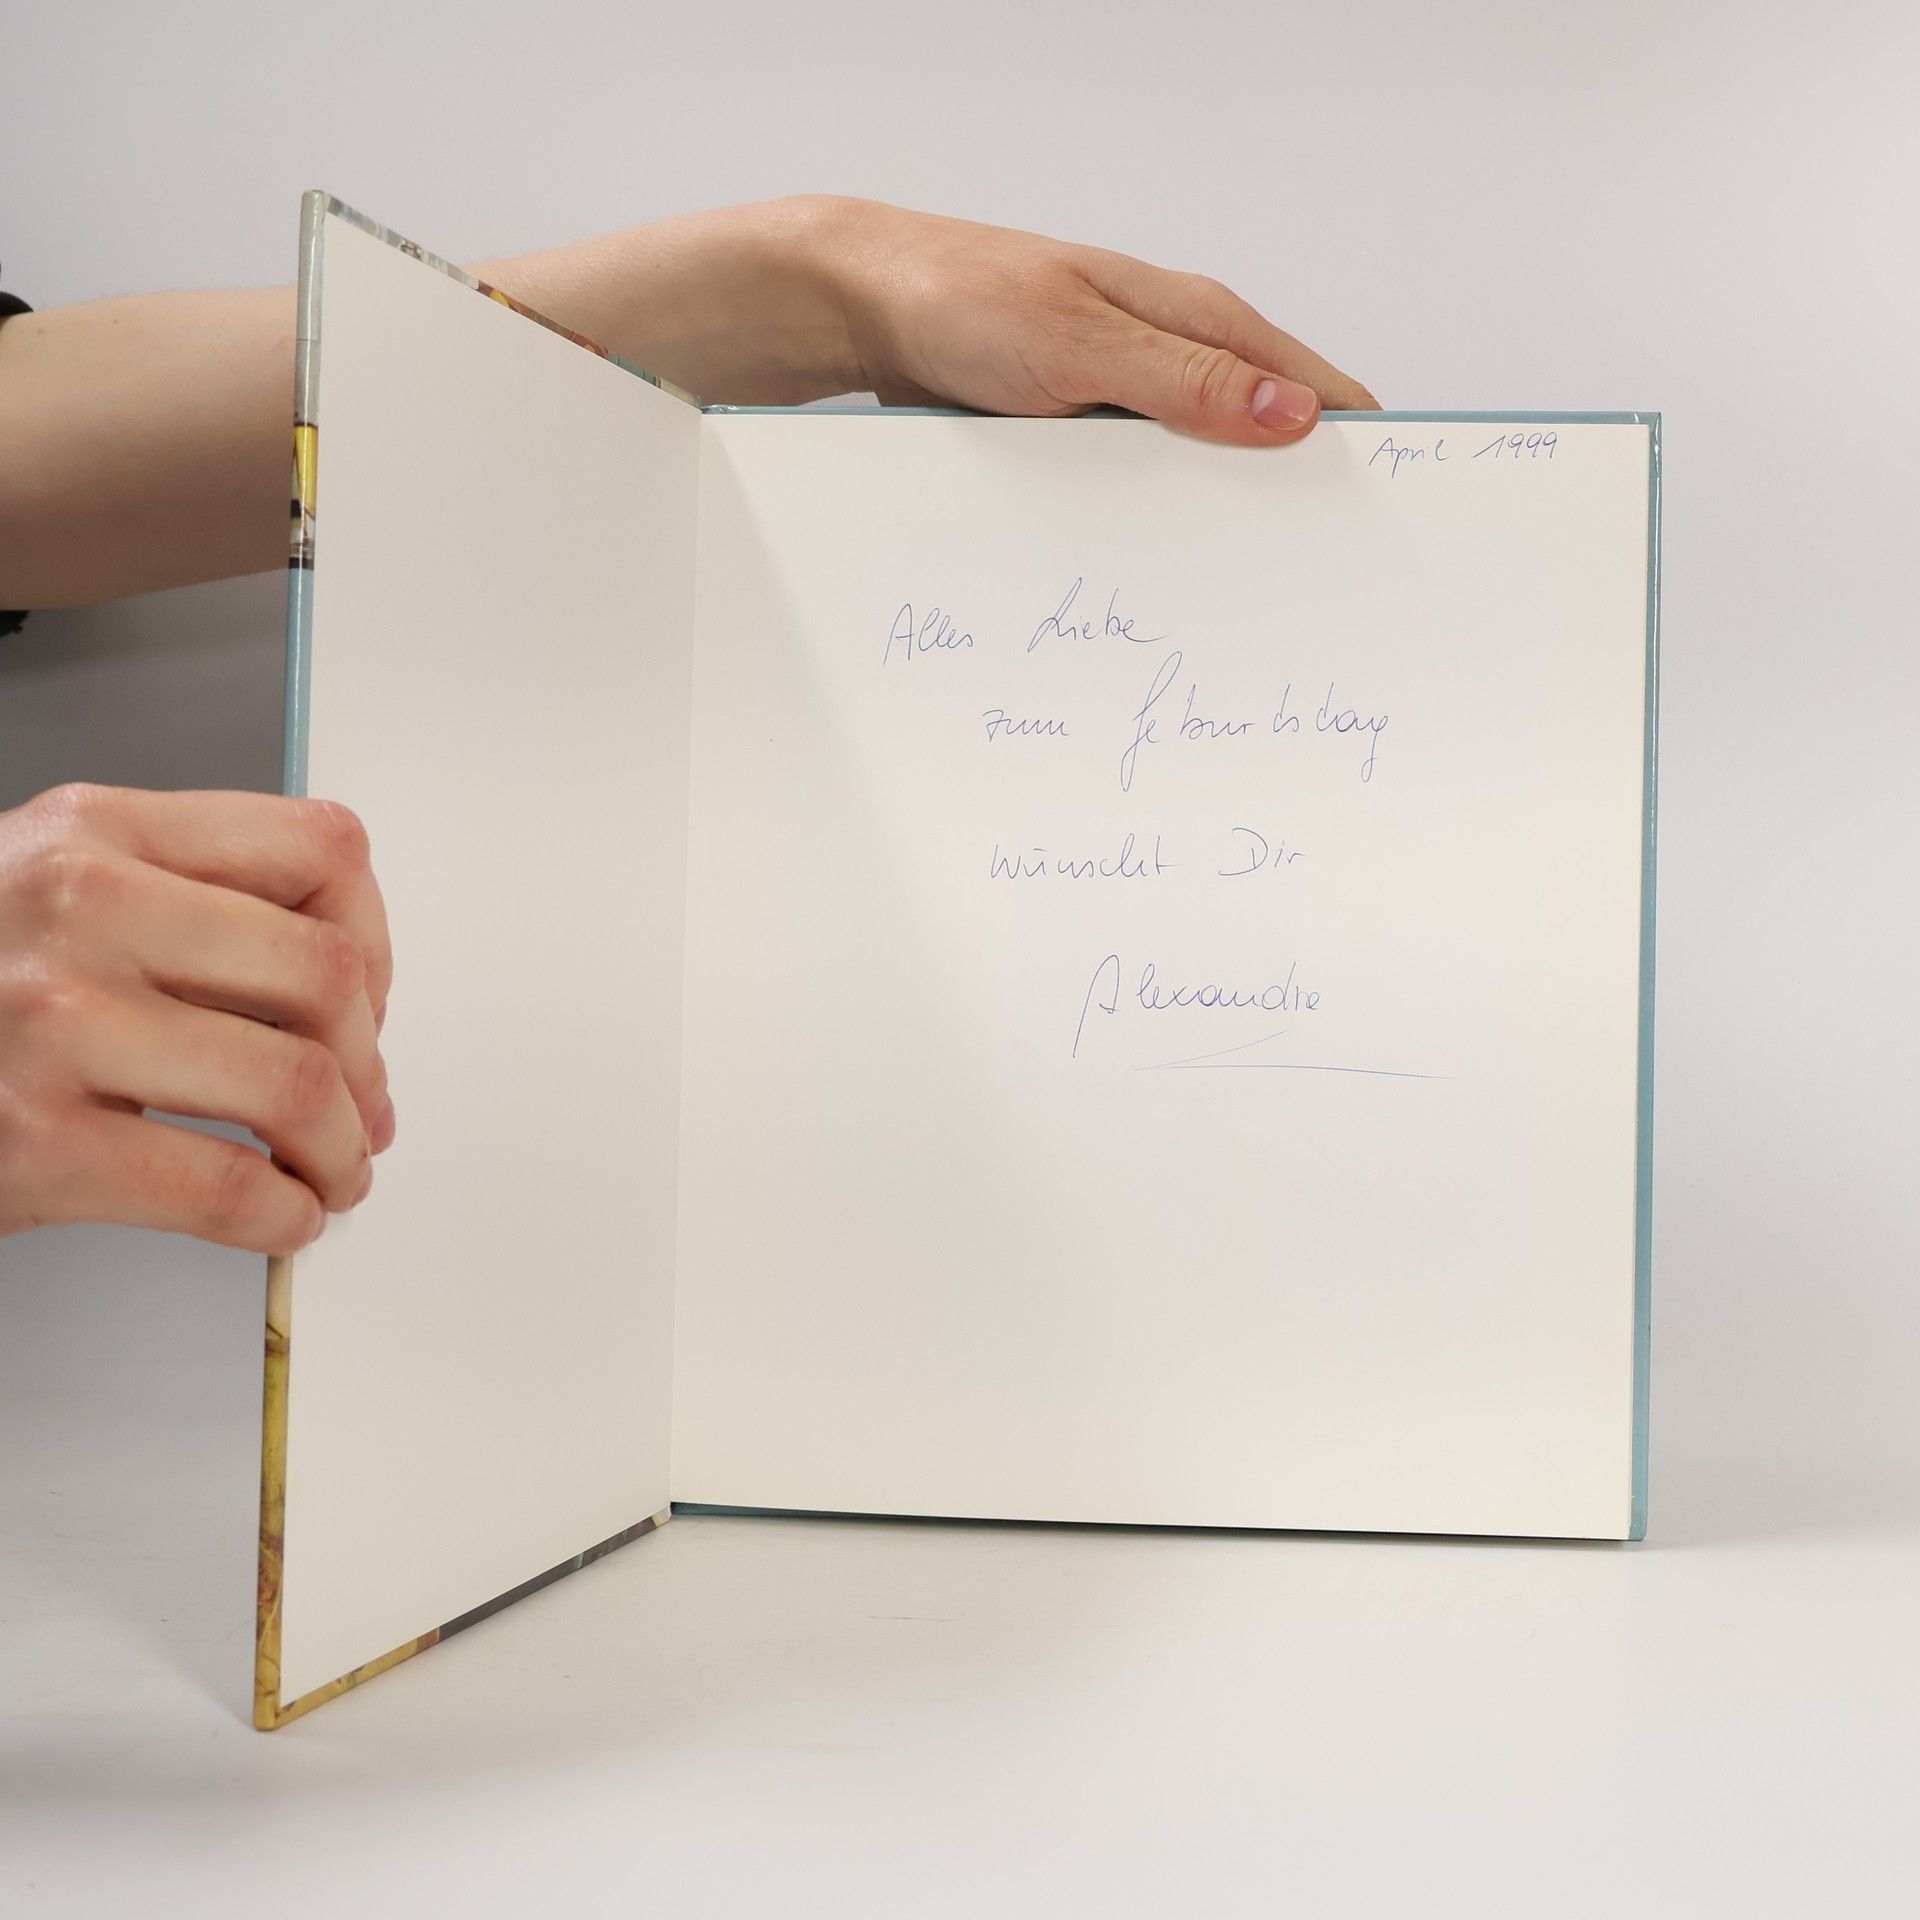 April 1999
Alles Liebe
zum Geburtstag
wünscht Dir
Alexandra